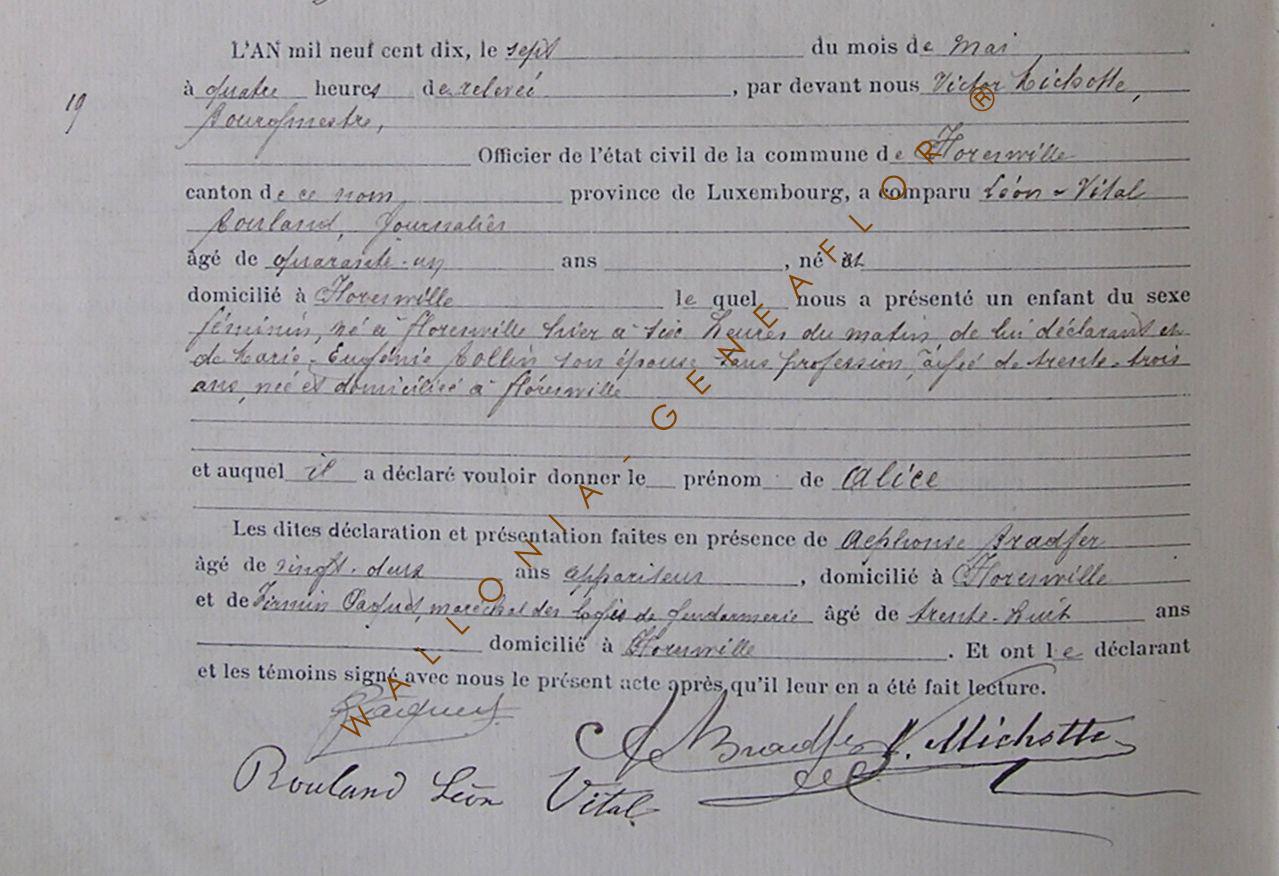 L'AN mil neuf cent dix, le sept du mois de Mai
19
à quatre heures de relevée, par devant nous Victor Michotte,
Bourgmestre,
Officier de l'état civil de la commune de Florenville
canton de ce nom province de Luxembourg, a comparu Léon-Vital
Rouland, Journalier
âgé de quarante-un ans, né et
domicilié à Florenville lequel nous a présenté un enfant du sexe
féminin, né à Florenville hier à six heures du matin, de lui déclarant et
de Marie-Eugénie Collin son épouse sans profession, âgée de trente-trois
ans, née et domiciliée à Florenville
et auquel il a déclaré vouloir donner le prénom de Alice
Les dites déclaration et présentation faites en présence de Alphonse Bradfer
âgé de vingt-deux ans appariteur, domicilié à Florenville
et de Firmin Jaques, maréchal des logis de gendarmerie âgé de trente-huit ans
domicilié à Florenville. Et ont le déclarant
et les témoins signé avec nous le présent acte après qu'il leur en a été fait lecture.
Jacques
A Bradfer V. Michotte
Rouland Léon Vital
WALLONIA-GENEAFLOR®